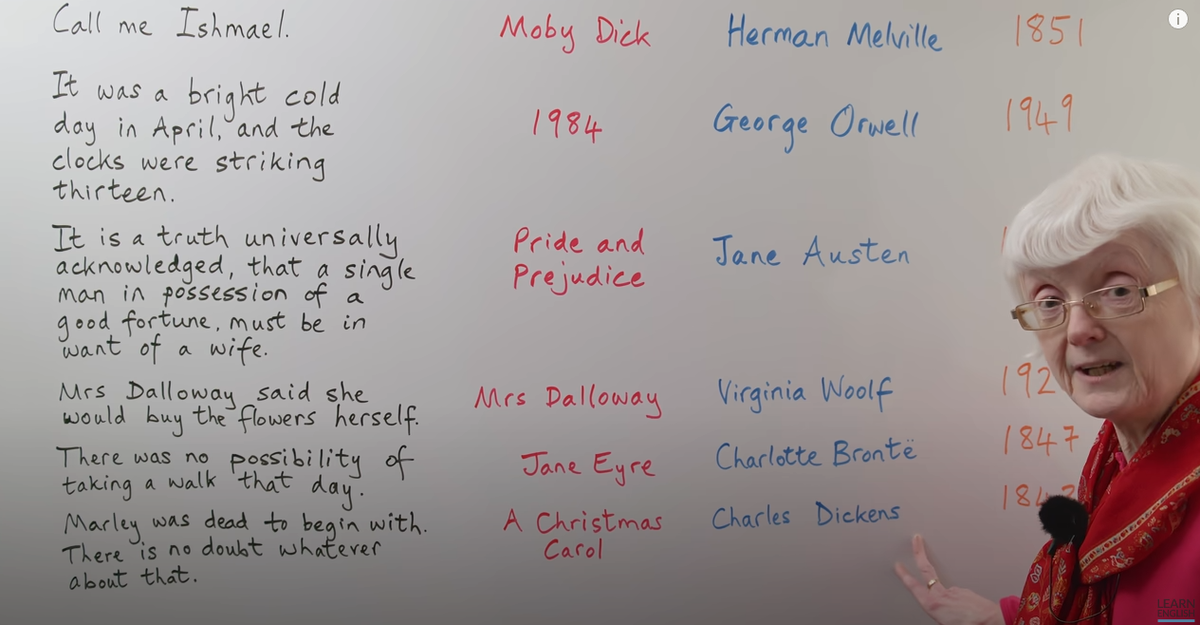 Call me Ishmael.
Moby Dick
Herman Melville
1851
It was a bright cold
day in April, and the
clocks were striking
thirteen.
1984
George Orwell
1949
It is a truth universally
acknowledged, that a single
man in possession of a
good fortune, must be in
want of a wife.
Pride and
Prejudice
Jane Austen
Mrs Dalloway said she
would buy the flowers herself.
Mrs Dalloway
Virginia Woolf
192
There was no possibility of
taking a walk that day.
Jane Eyre
Charlotte Brontë
1847
Marley was dead to begin with.
There is no doubt whatever
about that.
A Christmas
Carol
Charles Dickens
LEARN
ENGLISH